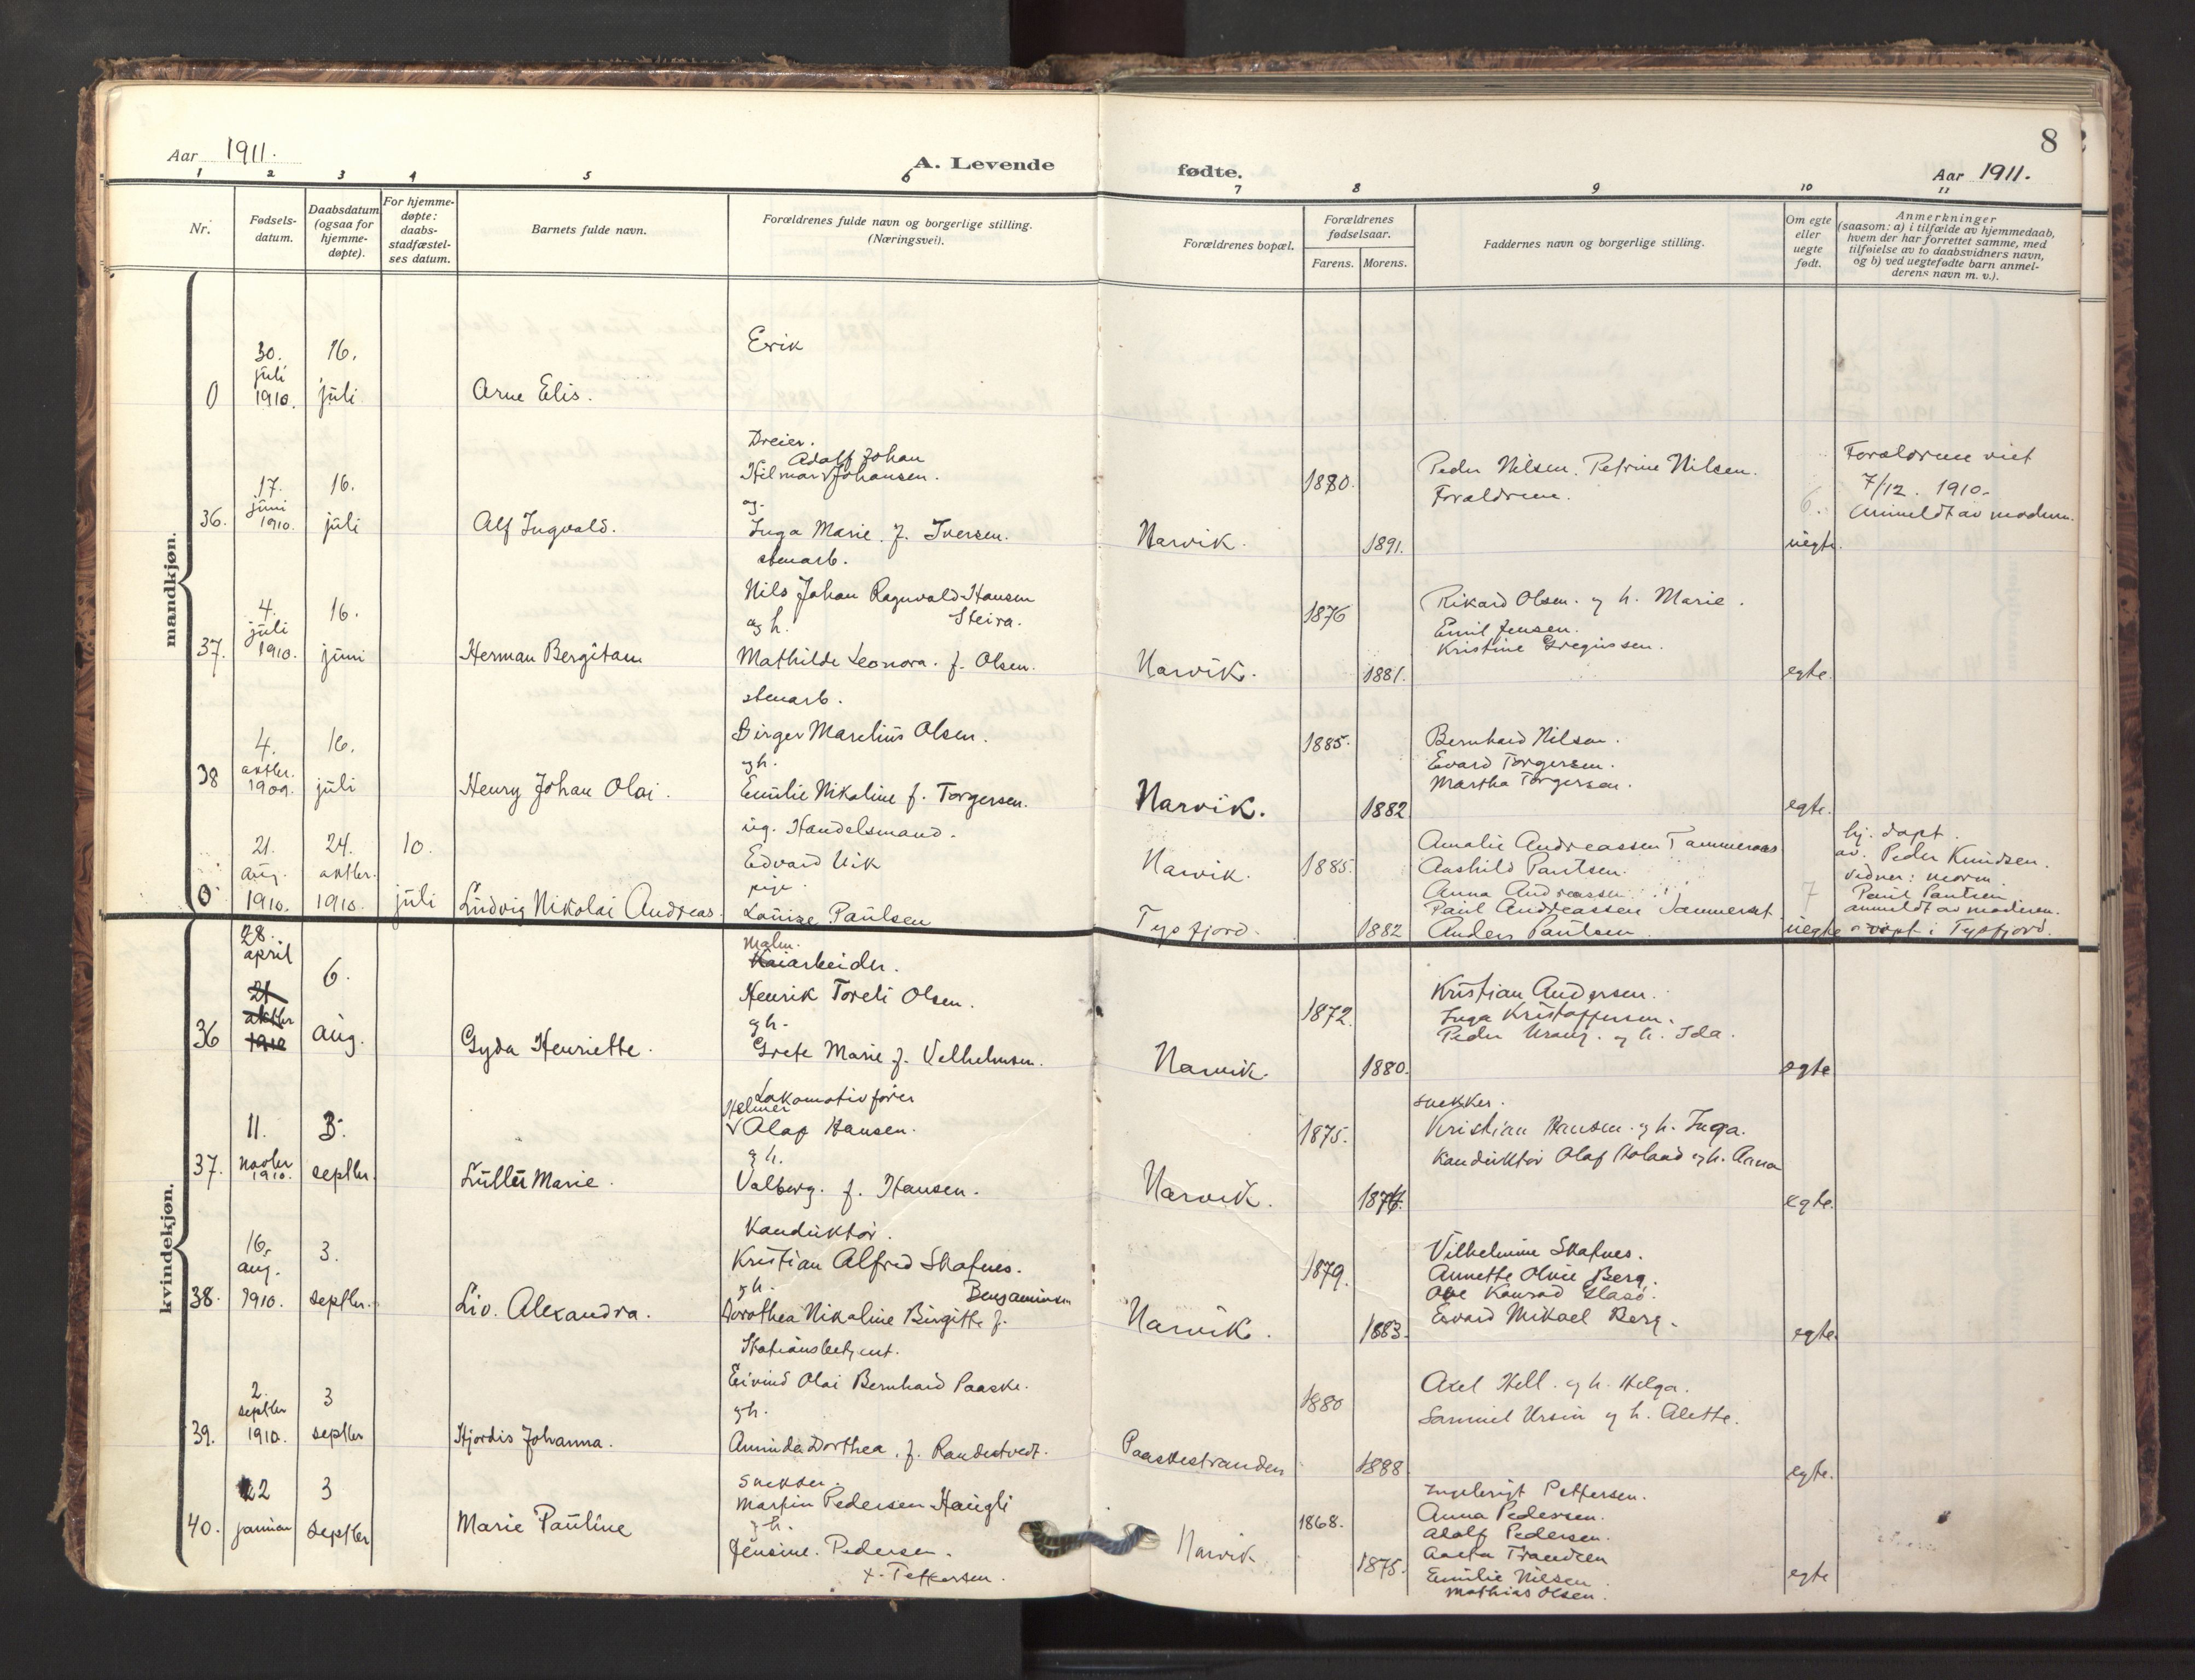 Aar 1911.
A. Levende
fødte.
8
Aar 1911.
1 2 3 4 5 6 7 8 9 10 11
Nr.
Fødsels-
datum.
Daabsdatum
(ogsaa for
hjemme-
døpte).
For hjemme-
døpte:
daabs-
stadfæstel-
ses datum.
Barnets fulde navn.
Forældrenes fulde navn og borgerlige stilling.
(Næringsvei).
Forældrenes bopæl.
Forældrenes
fødselsaar.
Farens. Morens.
Faddernes navn og borgerlige stilling.
Om egte
eller
uegte
født.
Anmerkninger
(saasom: a) i tilfælde av hjemmedaab,
hvem der har forrettet samme, med
tilføielse av to daabsvidners navn,
og b) ved uegtefødte barn anmel-
derens navn m. v.).
mandkjøn.
0
30.
juli
1910.
16.
juli
Arne Elis.
Erik
36.
17.
juni
1910.
16.
juli
Alf Ingvald.
Dreier.
Adolf Johan
Hilmar Johansen.
og
Inga Marie f. Iversen.
Narvik.
1880.
1891.
Peder Nilsen. Petrine Nilsen.
Forældrene.
uegte.
6.
Forældrene viet
7/12. 1910.
Anmeldt av moderen.
37.
4.
juli
1910.
16.
juni
Herman Bergitam
stenarb.
Nils Johan Ragnvald Hansen
og h. Steira.
Mathilde Leonora. f. Olsen.
Narvik.
1876
1881.
Rikard Olsen. og h. Marie.
Emil Jensen.
Kristine Gregussen.
egte.
38
4.
oktbr.
1909.
16.
juli
Henry Johan Olai.
stenarb.
Birger Marelius Olsen.
og h.
Emilie Nikoline f. Torgersen.
Narvik.
1885.
1882
Bernhard Nilsen.
Evard Torgersen.
Martha Torgersen.
egte.
0
21.
aug.
1910.
24.
oktbr.
1910.
10.
juli
Ludvig Nikolai Andreas.
ug. Handelsmand.
Edvard Vik
pige.
Louise Paulsen
Narvik.
Tysfjord.
1885.
1882
Amalie Andreassen Tammeraas
Aashild Paulsen.
Anna Andreassen
Paul Andreassen Sammerset
Anders Paulsen
uegte
7
hj. døpt.
av. Peder Knudsen.
Vidner: morm.
Paul Paulsen
anmeldt av moderen.
døpt i Tysfjord.
kvindekjøn.
36
28.
april
21
oktbr
1910
6.
aug.
Gyda Henriette.
Malm.
Kaiarbeider.
Henrik Toreli Olsen.
og h.
Grete Marie f. Velhelmsen.
Narvik.
1872.
1880.
Kristian Andersen.
Inga Kristoffersen.
Peder Urang. og h. Ida.
egte
37.
11.
novbr
1910.
3.
septbr.
Lullu Marie.
Lokomotivfører
Helmer
Olaf Hansen.
og h.
Valborg. f. Hansen.
Narvik.
1875.
1874.
snekker.
Kristian Hansen. og h. Inga.
Konduktør Olaf Roland og h. Anna
egte.
38.
16.
aug.
1910.
3.
septbr.
Liv. Alexandra.
Konduktør.
Kristian Alfred Skafnes.
og h.
Benjaminsen
Dorothea Nikoline Birgitte f.
Narvik.
1879.
1883.
Vilhelmine Skafnes.
Annette Oline Berg.
Ove Konrad Glasø.
Evard Mikael Berg.
egte.
39.
2.
septbr
1910.
3
septbr
Hjørdis Johanna.
Stationsbetjent.
Eivind Olai Bernhard Paaske.
og h.
Aminda Dorthea. f. Randestvedt.
Paaskestranden
1880
1888
Axel Hell. og h. Helga.
Samuel Ursin og h. Alette.
egte.
40.
22
januar
3
septbr
Marie Pauline
Snekker.
Martin Pedersen Haugli
og h.
Jensine. Pedersen.
f. Pettersen.
Narvik
1868.
1875.
Ingebrigt Pettersen.
Anna Pedersen.
Adolf Pedersen.
Aneta Trandsen
Emilie Nilsen
Mathias Olsen.
egte